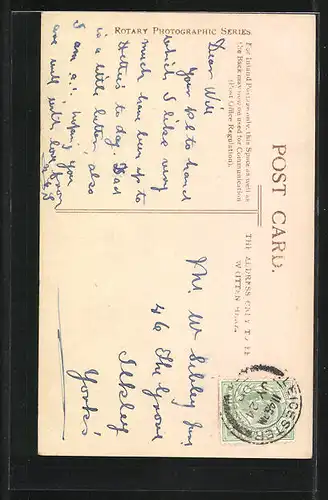 ROTARY PHOTOGRAPHIC SERIES
For Inland Postage only, this Space as well as
the Back may now be used for Communication
(Post Office Regulation).
POST CARD.
THE ADDRESS ONLY TO BE
WRITTEN HERE.
Dear Will
Your P.C to hand
which I like very
much have been up to
Hettie's to day. Dad
is a little better, also
I am. hoping you
are well with love from
Mr. W Sibley Jun
46 The Grove
Ilkley
Yorks
LEICESTER